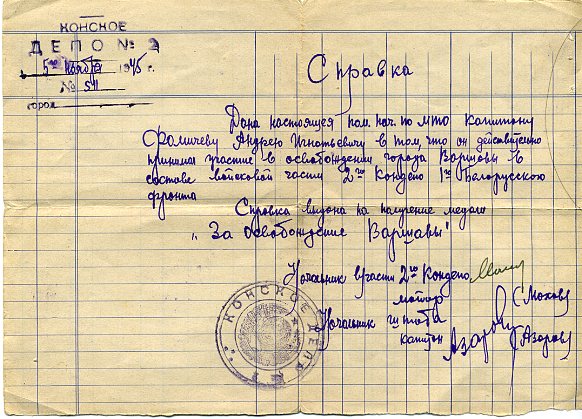 КОНСКОЕ
ДЕПО № 2
5го ноября 1945 г.
№ 541
город
Справка
Дана настоящея пом. нач. по МТО капитану
Фомичеву Андрею Игнатьевичу в том, что он действительно
принимал участие в освобождении города Варшавы в
составе войсковой части 2го Кондепо 1го Белорусского
фронта
Справка выдана на получение медали
„За освобождение Варшавы"
Начальник в/части 2го Кондепо
майор (Мохов)
Начальник штаба
капитан Азаров (Азаров)
КОНСКОЕ ДЕПО